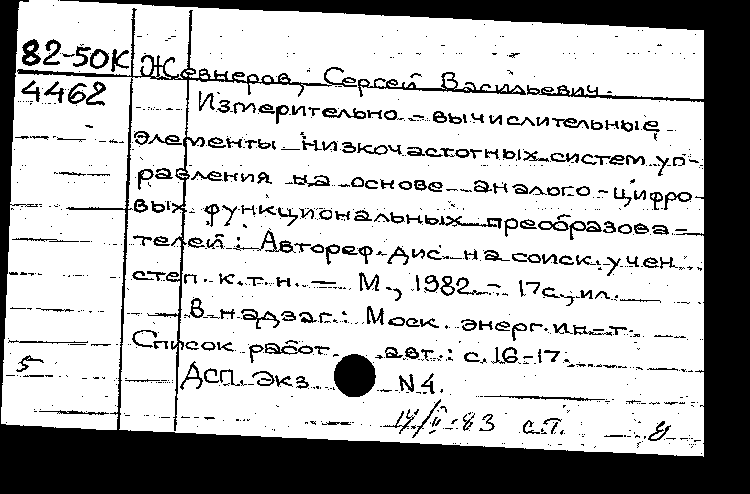 82-50К
4462
Жевнеров, Сергей Васильевич.
Измерительно-вычислительные
элементы низкочастотных систем уп-
равления на основе аналого-цифро
вых функциональных преобразова-
телей: Автореф. дис. на соиск. учен
степ. к.т.н. — М., 1982. - 17с., ил.
В надзаг.: Моск. энерг. ин-т.
Список работ. авт.: с. 16-17.
5
ДСП. Экз. N4.
14/II-83 с.т. у